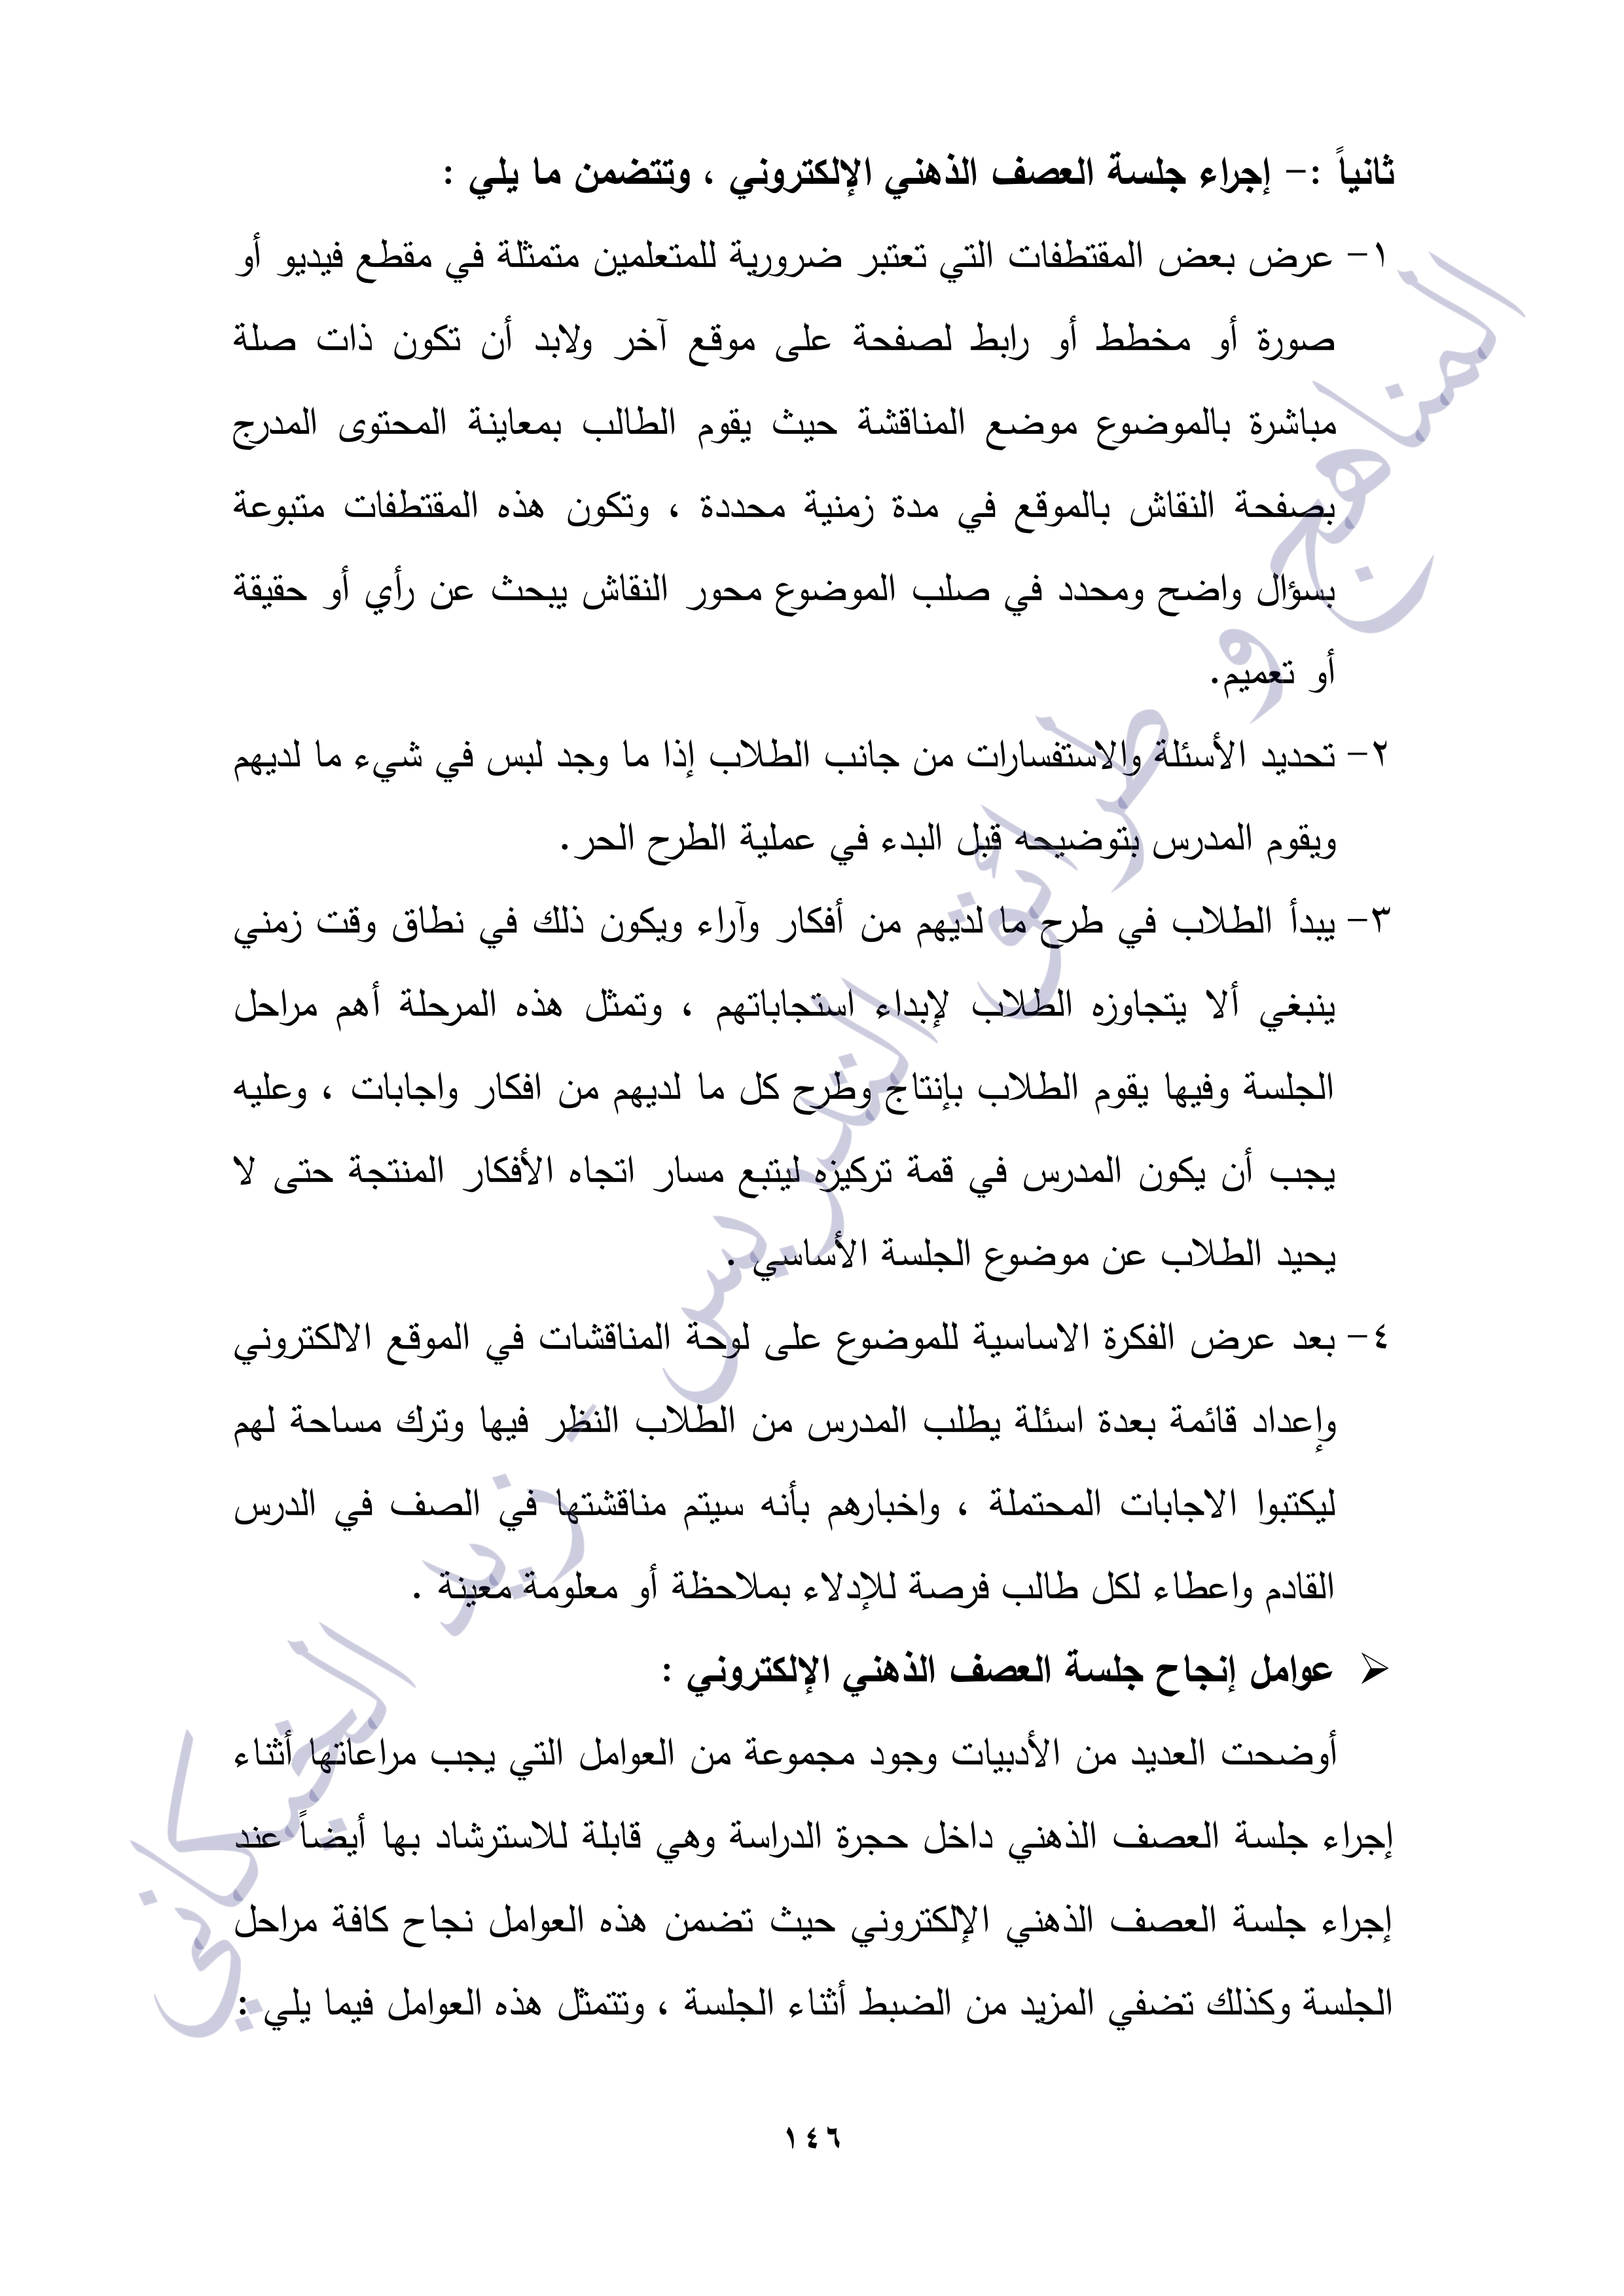 ثانياً :- إجراء جلسة العصف الذهني الإلكتروني ، وتتضمن ما يلي :
١- عرض بعض المقتطفات التي تعتبر ضرورية للمتعلمين متمثلة في مقطع فيديو أو
صورة أو مخطط أو رابط لصفحة على موقع آخر ولابد أن تكون ذات صلة
مباشرة بالموضوع موضع المناقشة حيث يقوم الطالب بمعاينة المحتوى المدرج
بصفحة النقاش بالموقع في مدة زمنية محددة ، وتكون هذه المقتطفات متبوعة
بسؤال واضح ومحدد في صلب الموضوع محور النقاش يبحث عن رأي أو حقيقة
أو تعميم.
٢- تحديد الأسئلة والاستفسارات من جانب الطلاب إذا ما وجد لبس في شيء ما لديهم
ويقوم المدرس بتوضيحه قبل البدء في عملية الطرح الحر.
٣- يبدأ الطلاب في طرح ما لديهم من أفكار وآراء ويكون ذلك في نطاق وقت زمني
ينبغي ألا يتجاوزه الطلاب لإبداء استجاباتهم ، وتمثل هذه المرحلة أهم مراحل
الجلسة وفيها يقوم الطلاب بإنتاج وطرح كل ما لديهم من افكار واجابات ، وعليه
يجب أن يكون المدرس في قمة تركيزه ليتبع مسار اتجاه الأفكار المنتجة حتى لا
يحيد الطلاب عن موضوع الجلسة الأساسي .
٤- بعد عرض الفكرة الاساسية للموضوع على لوحة المناقشات في الموقع الالكتروني
وإعداد قائمة بعدة اسئلة يطلب المدرس من الطلاب النظر فيها وترك مساحة لهم
ليكتبوا الاجابات المحتملة ، واخبارهم بأنه سيتم مناقشتها في الصف في الدرس
القادم واعطاء لكل طالب فرصة للإدلاء بملاحظة أو معلومة معينة .
➢ عوامل إنجاح جلسة العصف الذهني الإلكتروني :
أوضحت العديد من الأدبيات وجود مجموعة من العوامل التي يجب مراعاتها أثناء
إجراء جلسة العصف الذهني داخل حجرة الدراسة وهي قابلة للاسترشاد بها أيضاً عند
إجراء جلسة العصف الذهني الإلكتروني حيث تضمن هذه العوامل نجاح كافة مراحل
الجلسة وكذلك تضفي المزيد من الضبط أثناء الجلسة ، وتتمثل هذه العوامل فيما يلي :
١٤٦
المناهج و طرائق التدريس - زيد الخيكاني